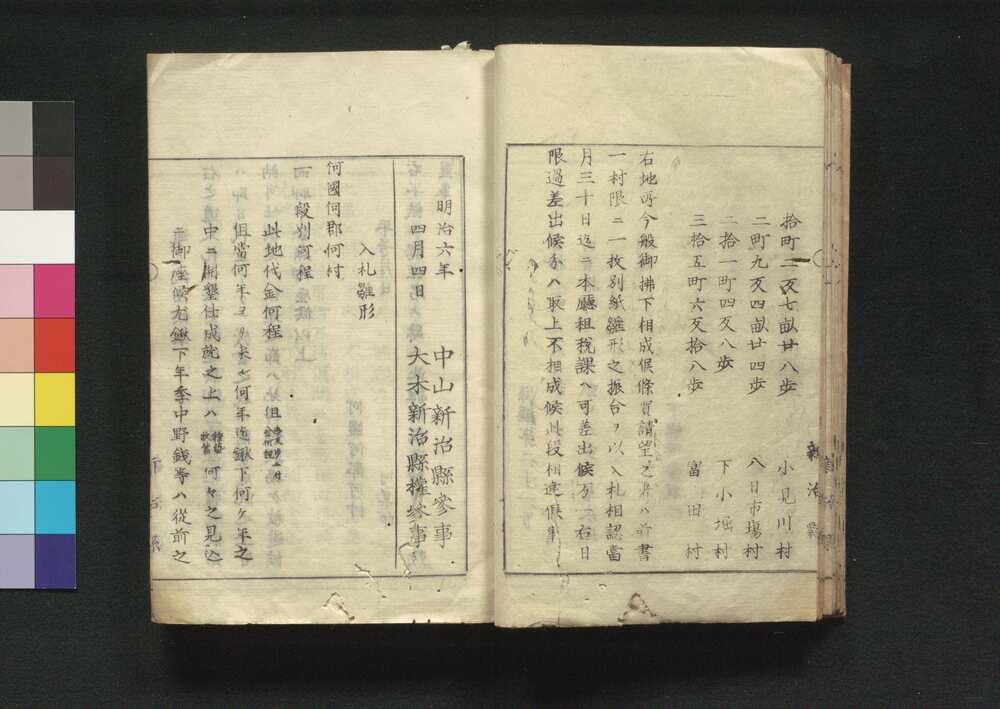 拾町二反七畝廿八歩 小見川村
二町九反四畝廿四歩 八日市場村
二拾一町四反八歩 下小堀村
三拾五町六反拾八歩 富田村
右地所今般御拂下相成候條買請望之者ハ前書
一村限ニ一枚別紙雛形之振合ヲ以入札相認當
月三十日迄ニ本廳租税課ヘ可差出候万一右日
限過差出候分ハ取上不相成候此段相達候事
新治縣
明治六年 中山新治縣參事
四月四日 大木新治縣權參事
入札雛形
何國何郡何村
一段別何程
此地代金何程
但當何年ヨリ来ル何年迄鍬下何ケ年之
中ニ開墾仕成就之上ハ何々之見込
ニ御座候尤鍬下年季中野銭等ハ從前之